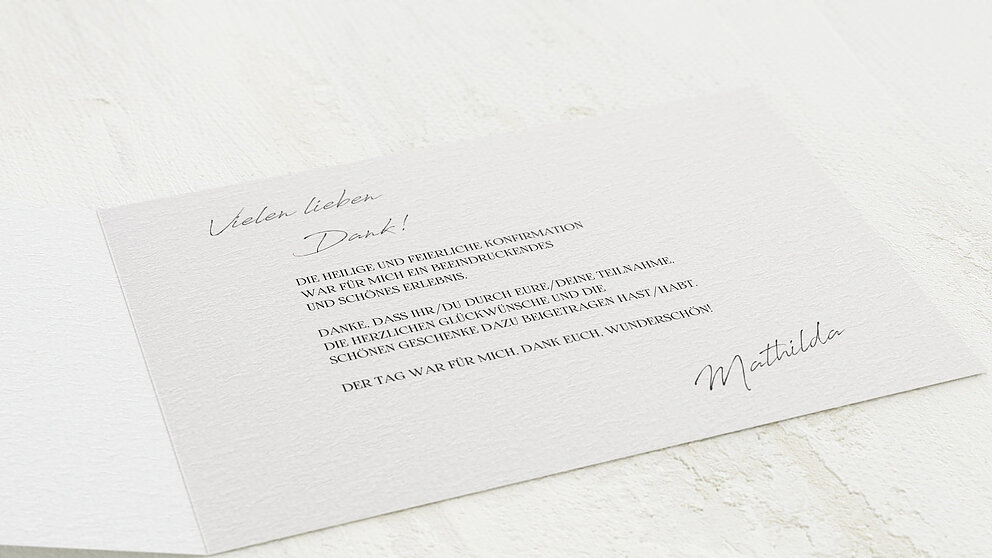 Vielen lieben
Dank!
DIE HEILIGE UND FEIERLICHE KONFIRMATION
WAR FÜR MICH EIN BEEINDRUCKENDES
UND SCHÖNES ERLEBNIS.
DANKE, DASS IHR/DU DURCH EURE/DEINE TEILNAHME,
DIE HERZLICHEN GLÜCKWÜNSCHE UND DIE
SCHÖNEN GESCHENKE DAZU BEIGETRAGEN HAST/HABT.
DER TAG WAR FÜR MICH, DANK EUCH, WUNDERSCHÖN!
Mathilda